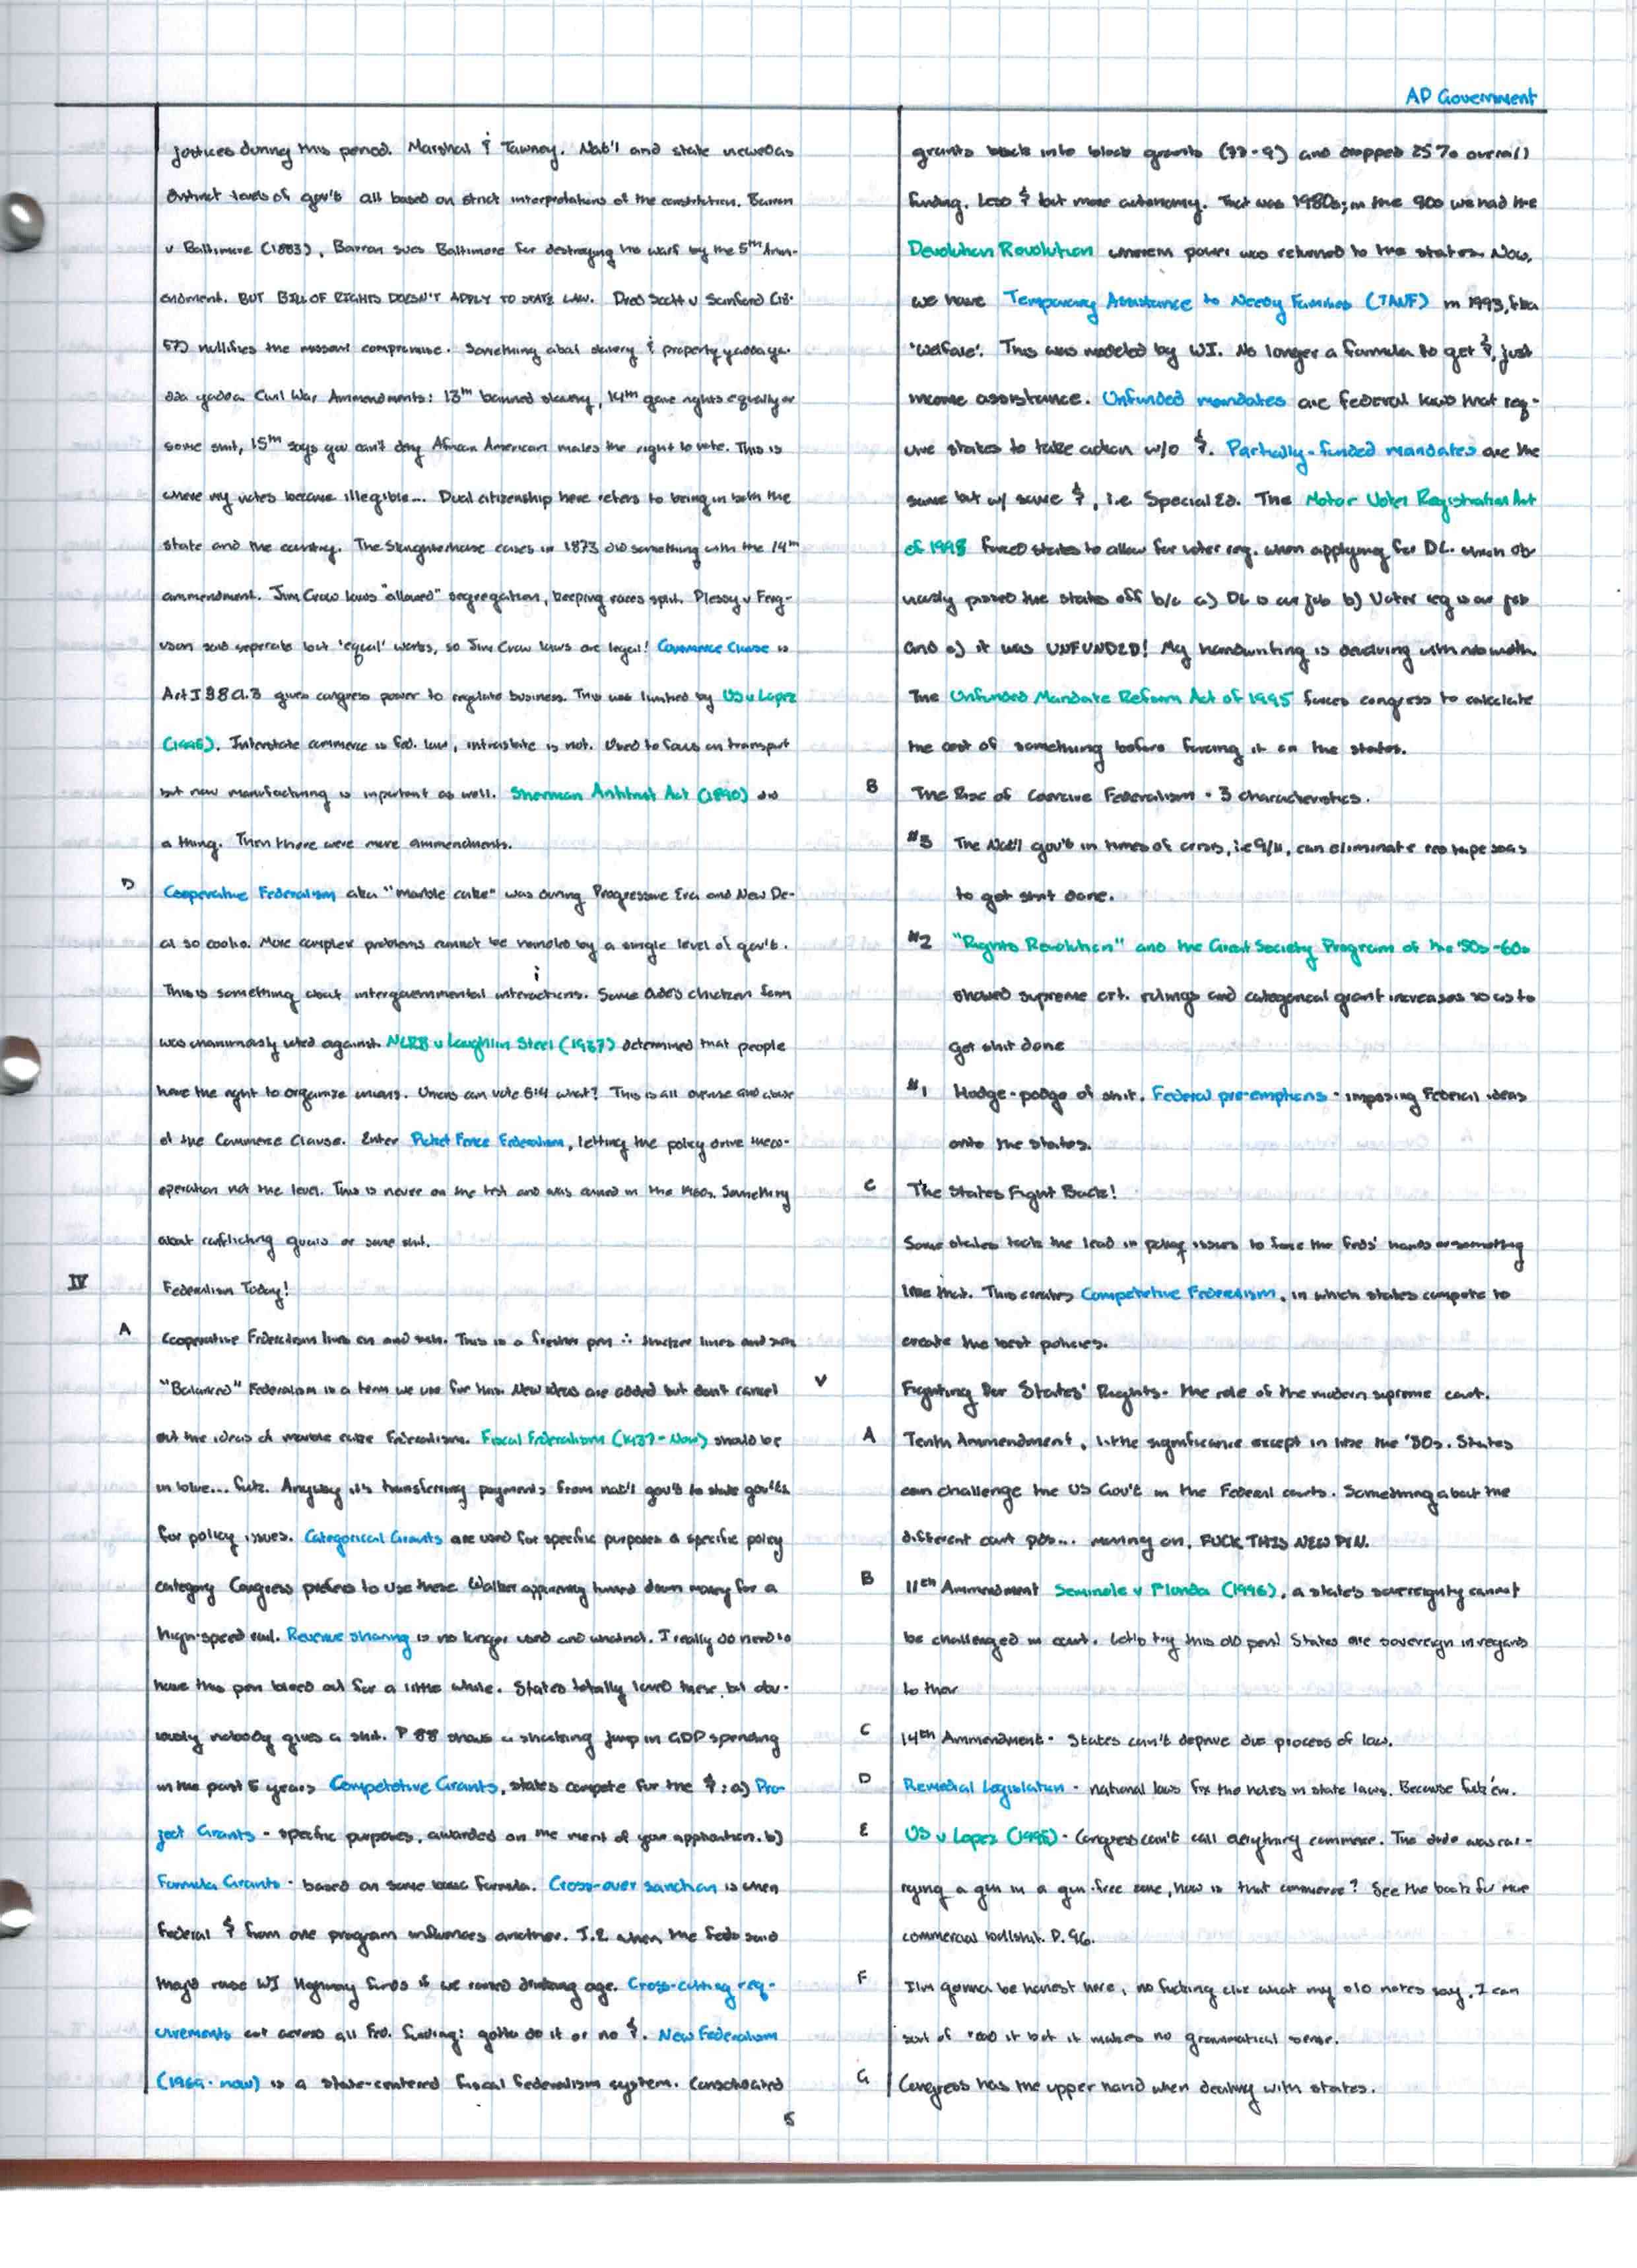 AP Government
justices during this period. Marshal & Tawney. Nat'l and state viewed as
distinct levels of gov't all based on strict interpretations of the constitution. Barron
v Baltimore (1883), Barron sues Baltimore for destroying his warf by the 5th Amm-
endment. BUT BILL OF RIGHTS DOESN'T APPLY TO STATE LAW. Dred Scott v Sanford (18-
57) nullifies the missouri compromise. Something about slavery & property yadda ya-
dda yadda. Civil War Ammendments: 13th banned slavery, 14th gave rights equally or
some shit, 15th says you can't deny African American males the right to vote. This is
where my notes become illegible... Dual citizenship here refers to being in both the
state and the country. The Slaughterhouse cases in 1873 did something with the 14th
ammendment. Jim Crow laws "allowed" segregation, keeping races split. Plessy v Ferg-
uson said seperate but 'equal' works, so Jim Crow laws are legal! Commerce Clause is
Art I § 8 Cl. 3 gives congress power to regulate business. This was limited by US v Lopez
(1995). Interstate commerce is fed. law, intrastate is not. Used to focus on transport
but now manufacturing is important as well. Sherman Antitrust Act (1890) did
a thing. Then there were more ammendments.
D Cooperative Federalism aka "marble cake" was during Progressive Era and New De-
al so cool. More complex problems cannot be handled by a single level of gov't.
This is something about intergovernmental interactions. Some dude's chicken farm
was unanimously voted against. NLRB v Laughlin Steel (1937) determined that people
have the right to organize unions. Unions can vote 5:4 what? This is all overuse and abuse
of the Commerce Clause. Enter Picket Fence Federalism, letting the policy drive the co-
operation not the level. This is never on the test and was coined in the 1960s. Something
about conflicting goals or some shit.
IV Federalism Today!
A Cooperative Federalism lives on and such. This is a fresher pen ∴ thicker lines and such
"Balanced" Federalism is a term we use for this. New ideas are added but don't cancel
out the ideas of marble cake Federalism. Fiscal Federalism (1937-Now) should be
in blue... fuck. Anyway it's transferring payments from nat'l gov't to state gov'ts
for policy issues. Categorical Grants are used for specific purposes a specific policy
category Congress prefers to use these Walker apparently turned down money for a
high-speed rail. Revenue sharing is no longer used and whatnot. I really do need to
have this pen bleed out for a little while. States totally loved these, but obv-
iously nobody gives a shit. P 88 shows a shocking jump in GDP spending
in the past 5 years Competetive Grants, states compete for the $: a) Pro-
ject Grants - specific purposes, awarded on the merit of your application. b)
Formula Grants - based on some basic formula. Cross-over sanction is when
Federal $ from one program influences another. I.E when the feds said
they'd raise WI Highway funds if we raised drinking age. Cross-cutting req-
uirements cut across all fed. funding: gotta do it or no $. New Federalism
(1969-now) is a state-centered fiscal federalism system. Consolidated
5
grants back into block grants (77-9) and dropped 25% overall
funding. Less $ but more autonomy. That was 1980s; in the 90s we had the
Devolution Revolution wherein power was returned to the states. Now,
we have Temporary Assistance to Needy Families (TANF) in 1993, fka
'Welfare'. This was modeled by WI. No longer a formula to get $, just
income assistance. Unfunded mandates are federal laws that req-
uire states to take action w/o $. Partially-funded mandates are the
same but w/ some $, i.e. Special Ed. The Motor Voter Registration Act
of 1993 forced states to allow for voter reg. when applying for DL. which ob-
viously pissed the states off b/c a) DL is our job b) Voter reg is our job
and c) it was UNFUNDED! My handwriting is devolving with
The Unfunded Mandate Reform Act of 1995 forces congress to calculate
the cost of something before forcing it on the states.
B The Rise of Coercive Federalism - 3 characteristics.
#3 The Nat'l gov't in times of crisis, i.e 9/11, can eliminate red tape so as
to get shit done.
#2 "Rights Revolution" and the Great Society Program of the '50s-60s
showed supreme crt. rulings and categorical grant increases so as to
get shit done
#1 Hodge-podge of shit. Federal pre-emptions - imposing Federal ideas
onto the states.
C The States Fight Back!
Some states took the lead in policy issues to force the feds' hands or something
like that. This creates Competetive Federalism, in which states compete to
create the best policies.
V Fighting for States' Rights- the role of the modern supreme court.
A Tenth Ammendment, little significance except in like the '80s. States
can challenge the US Gov't in the Federal courts. Something about the
different court pos... moving on, FUCK THIS NEW PEN.
B 11th Ammendment Seminole v Florida (1996), a state's sovereignty cannot
be challenged in court. Let's try this old pen! States are sovereign in regards
to
C 14th Ammendment- States can't deprive due process of law.
D Remedial Legislation - national laws fix the holes in state laws. Because fuck 'em.
E US v Lopez (1995) - Congress can't call everything commerce. The dude was car-
rying a gun in a gun-free zone, how is that commerce? See the book for more
commercial bullshit. P. 96.
F I'm gonna be honest here, no fucking clue what my old notes say. I can
sort of read it but it makes no grammatical sense.
G Congress has the upper hand when dealing with states.